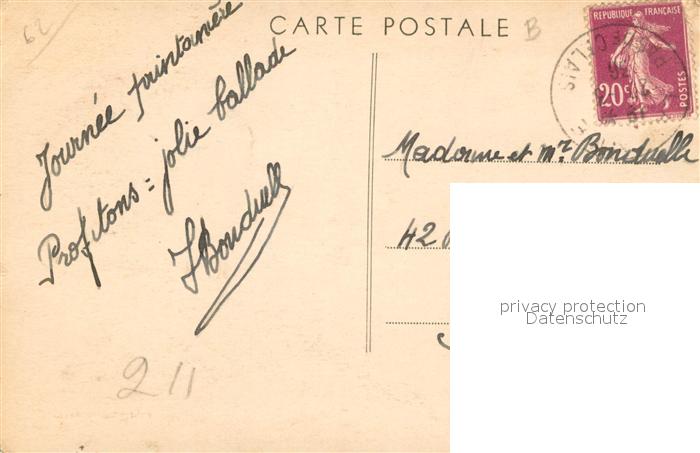 62
CARTE POSTALE
B
REPUBLIQUE FRANÇAISE
20c
POSTES
Journée printanière
Profitons = jolie ballade
JBonduelle
Madame et Mr Bonduelle
42
privacy protection
Datenschutz
211